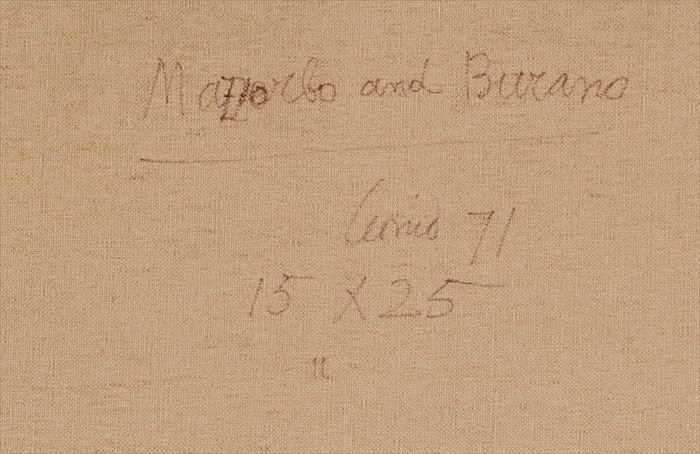 Mazzorbo and Burano
71
15 X 25